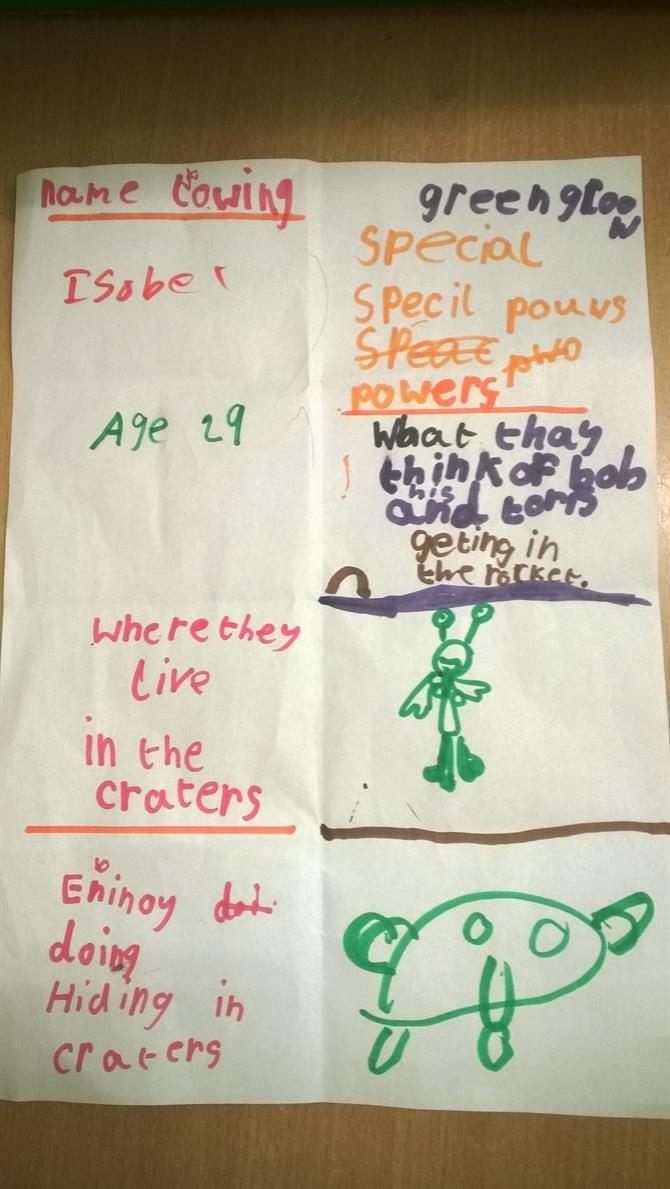 name towing
Isobel
Age 29
Where they
live
in the
craters
Eninoy
doing
Hiding in
craters
green gloow
Special
Specil pouvs
powers
What thay
think of bob
and his toms
geting in
the rocket.